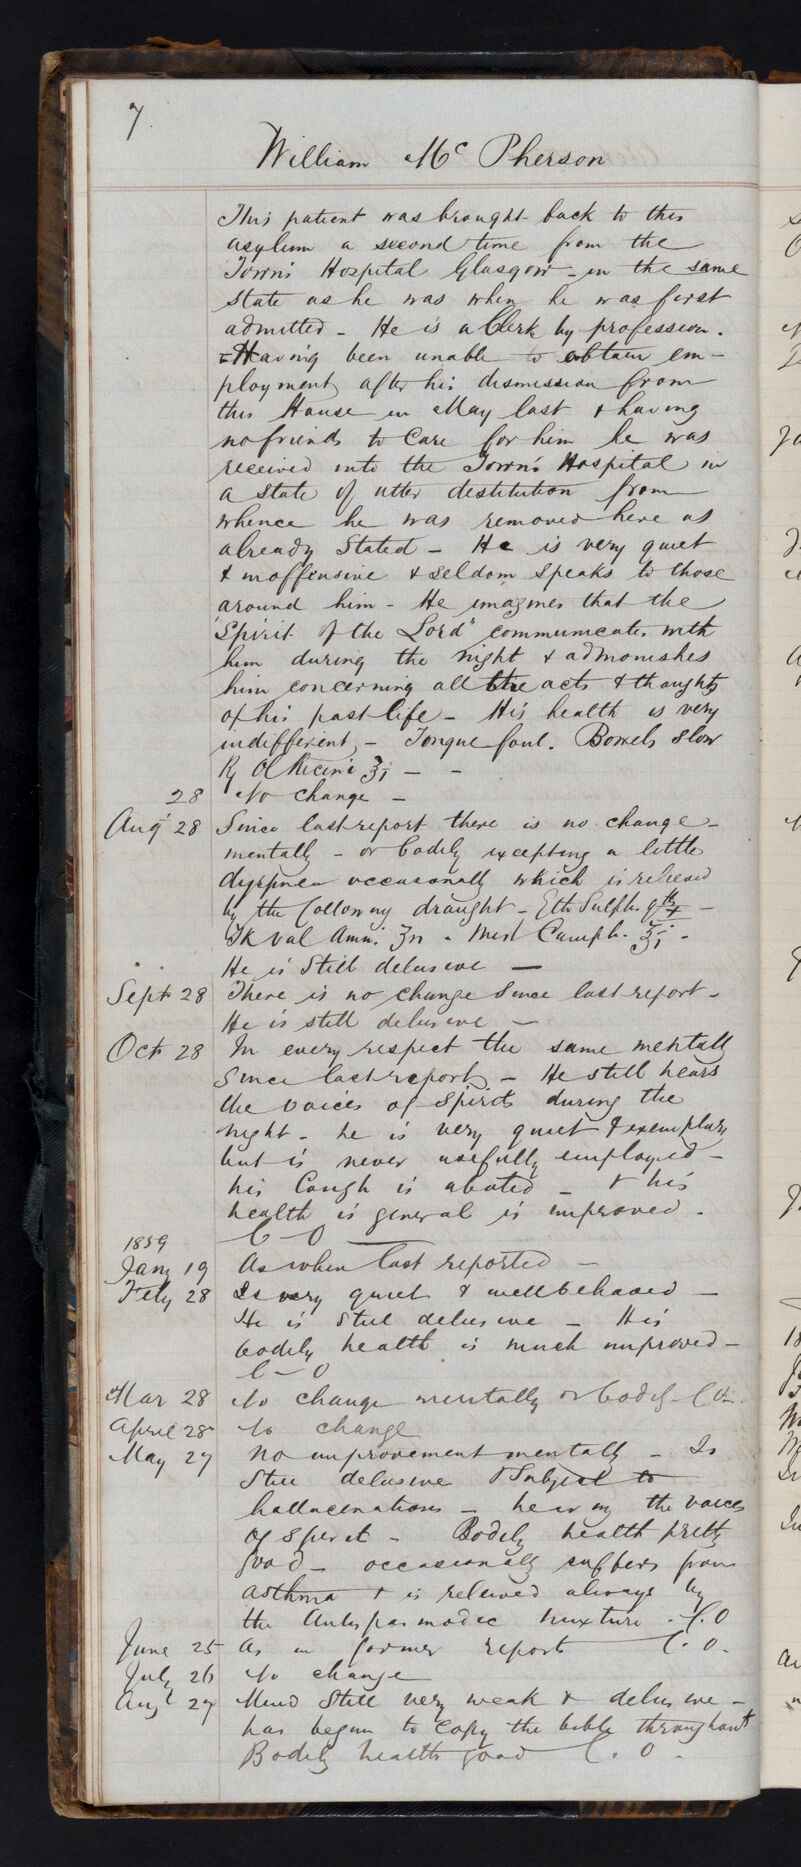 7
William McPherson
This patient was brought back to this
asylum a second time from the
Town's Hospital Glasgow - in the same
state as he was when he was first
admitted - He is a Clerk by profession.
- Having been unable to obtain em-
ployment after his dismission from
this House in May last & having
no friends to care for him he was
received into the Town's Hospital in
a state of utter destitution from
whence he was removed here as
already stated - He is very quiet
& inoffensive & seldom speaks to those
around him - He imagines that the
"Spirit of the Lord" communicates with
him during the night & admonishes
him concerning all the acts & thoughts
of his past life - His health is very
indifferent, - Tongue foul. Bowels slow
Rx Ol Ricini ℥j - -
28 No change -
Augt 28 Since last report there is no change -
mentally - or bodily excepting a little
dyspnea occasionally which is relieved
by the following draught - Eth Sulph.
Tr Val Amm. - Mist Camph. ℥j -
He is still delusive -
Sept 28 There is no change since last report -
He is still delusive -
Oct 28 In every respect the same mentally
since last report - He still hears
the voices of spirits during the
night - he is very quiet & exemplary
but is never usefully employed -
his cough is abated - & his
health is general is improved.
C - O
1859
Jany 19 As when last reported -
Feby 28 Is very quiet & well behaved -
He is still delusive - His
bodily health is much improved -
C - O
Mar 28 No change mentally or bodily - C O.
April 28 No change
May 27 No improvement mentally - Is
still delusive & subject to
hallucinations - hearing the voices
of spirit - Bodily health pretty
good - occasionally suffers from
asthma & is relieved always by
the Antispasmodic mixture. C. O
June 25 As in former report C. O.
July 26 No change
Augt 27 Mind still very weak & delusive -
has begun to copy the bible throughout
Bodily health good C. O.